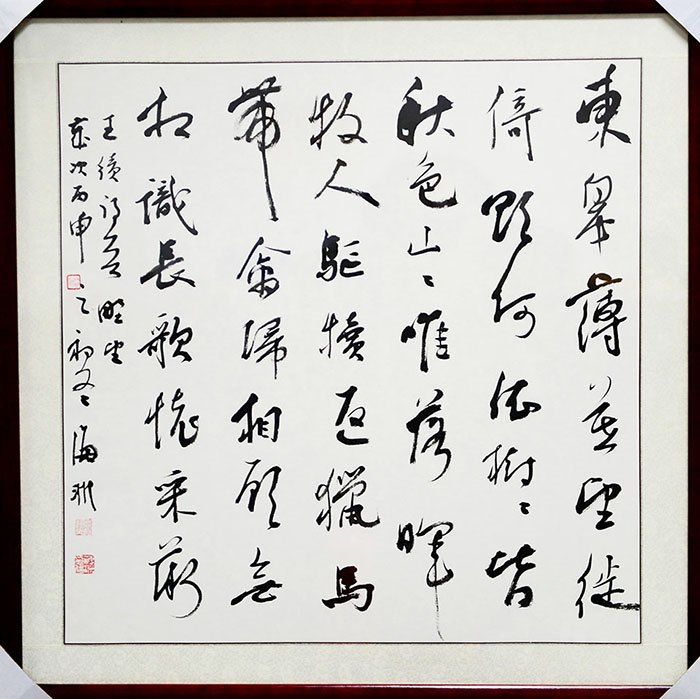 東皋薄暮望徙
倚欲何依樹〻皆
秋色山〻唯落暉
牧人驅犢返獵馬
帶禽歸相顧無
相識長歌懷采薇
王績詩 野望
歲次丙申之初冬 海